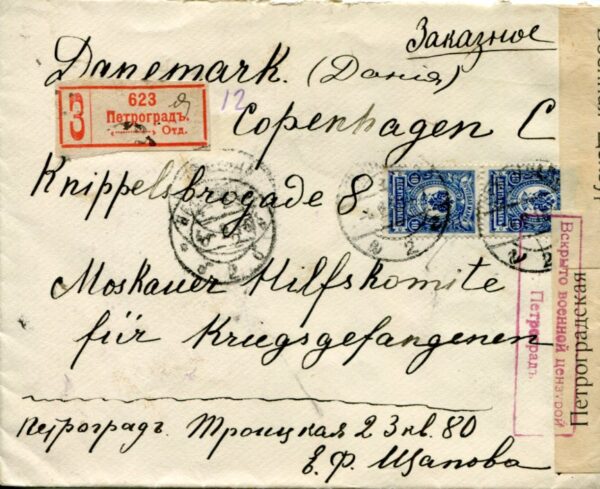 Заказное
Danemark. (Данія)
З
623
Петроградъ.
Отд.
12
Copenhagen C
Knippelsbrogade 8
Moskauer Hilfskomite
für Kriegsgefangenen
Вскрыто военной цензурой
Петроградъ.
Петроградская
Петроградъ. Троицкая 23 кв. 80
Е. Ф. Щапова